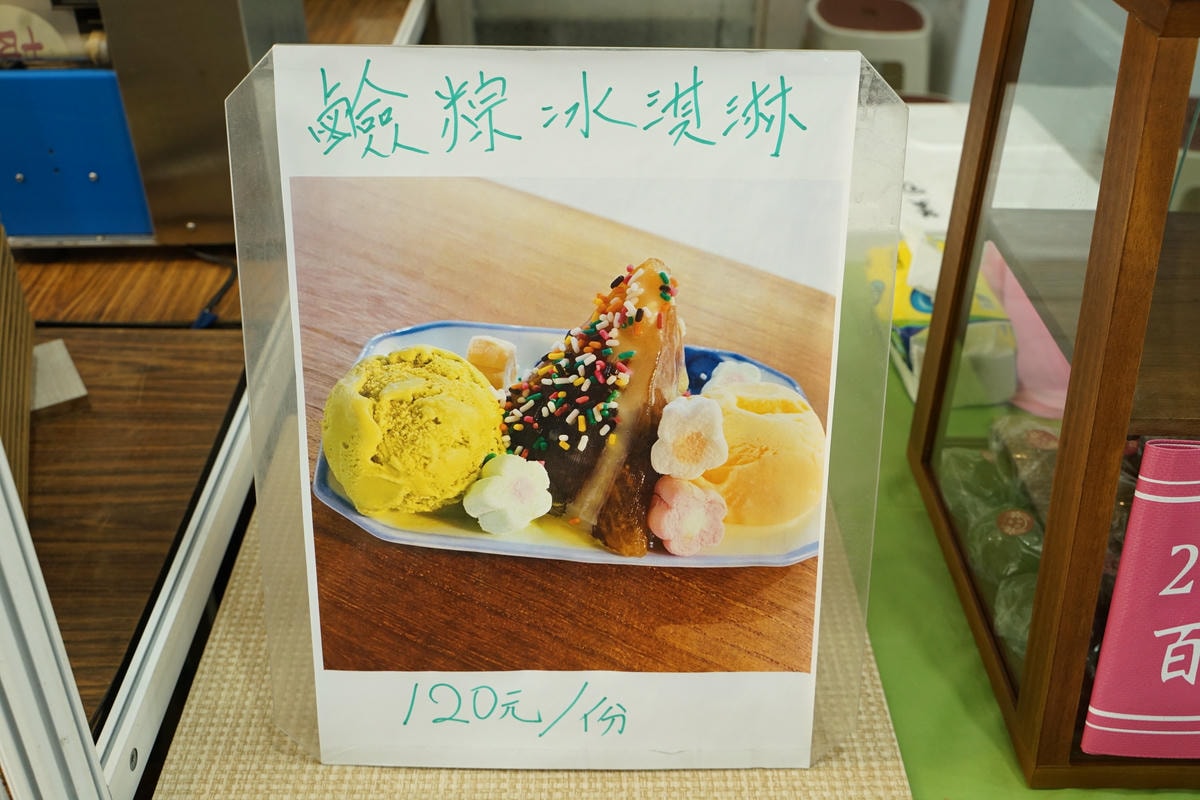 鹼粽冰淇淋
120元/份
2
百